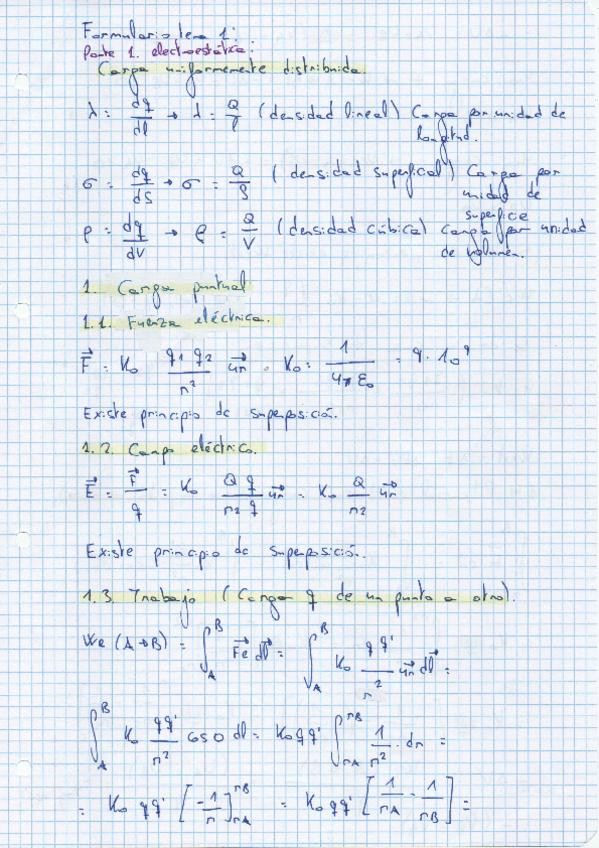 Formulario tema 1:
Parte 1. electroestática:
Carga uniformemente distribuida.
λ = dq/dl → λ = Q/l (densidad lineal) Carga por unidad de
longitud.
σ = dq/dS → σ = Q/S (densidad superficial) Carga por
unidad de
superficie
ρ = dq/dV → ρ = Q/V (densidad cúbica) carga por unidad
de volumen.
1. Carga puntual
1.1. Fuerza eléctrica.
F⃗ = K₀ q₁ q₂/r² u⃗r . K₀ = 1/4πε₀ = 9·10⁹
Existe principio de superposición.
1.2. Campo eléctrico.
E⃗ = F⃗/q = K₀ Q q/r² q u⃗r = K₀ Q/r² u⃗r
Existe principio de superposición.
1.3. Trabajo (Carga q de un punto a otro).
We (A→B) = ∫_A^B F⃗e dl⃗ = ∫_A^B K₀ qq'/r² u⃗r dl⃗ =
∫_A^B K₀ qq'/r² cos 0 dl = K₀qq' ∫_rA^rB 1/r² · dr =
= K₀ qq' [-1/r]_rA^rB = K₀ qq' [1/rA - 1/rB] =